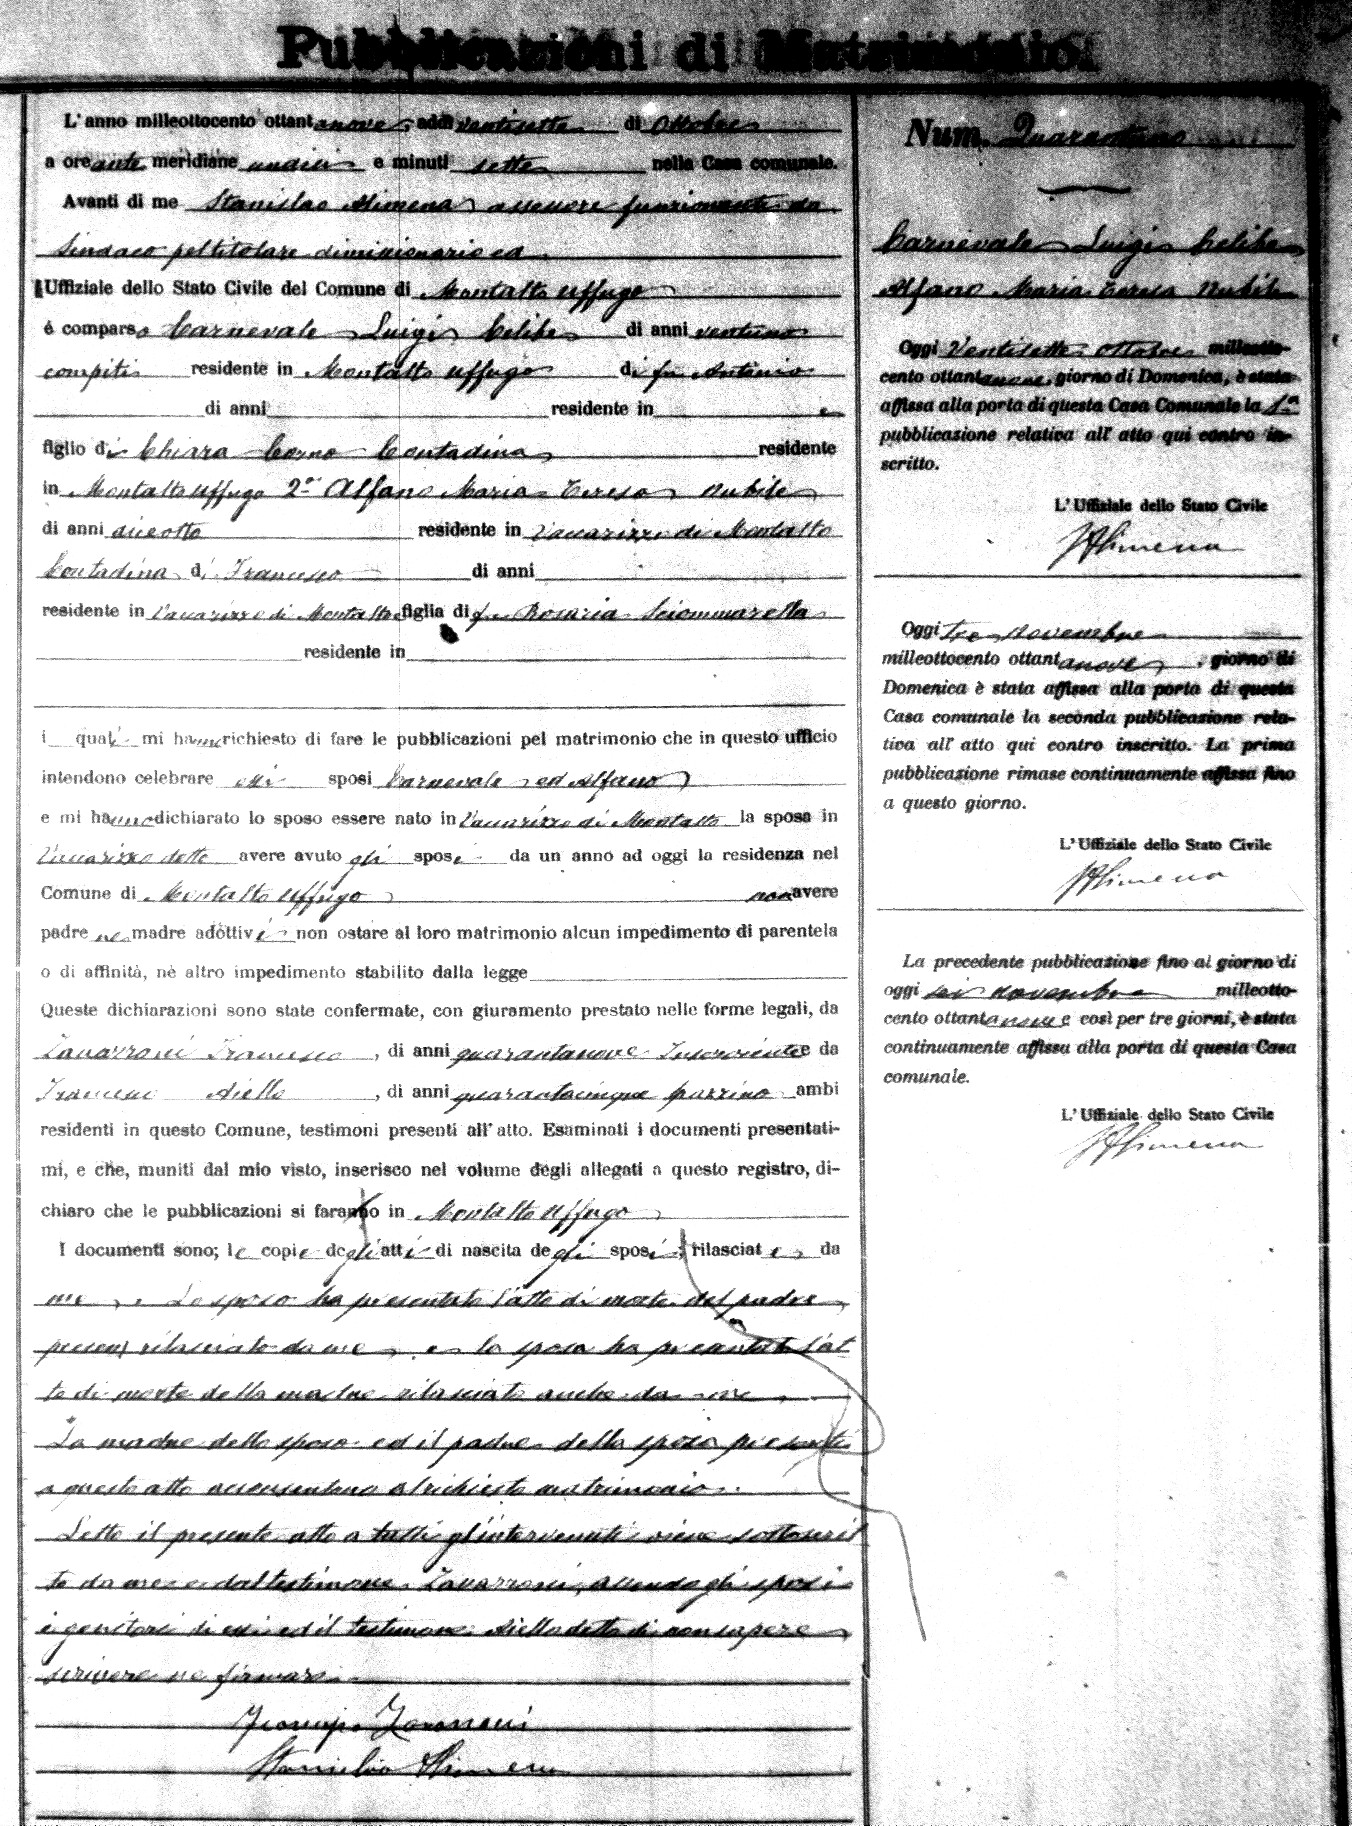 Pubblicazioni di Matrimonio.
L'anno milleottocento ottantanove, addì ventisette di Ottobre
a ore ante meridiane undici e minuti sette nella Casa comunale.
Avanti di me Stanislao Alimena assessore funzionante da
Sindaco pel titolare dimissionario ed
Uffiziale dello Stato Civile del Comune di Montalto Uffugo
è comparso Carnevale Luigi Celibe di anni ventuno
compiti residente in Montalto Uffugo di fu Antonio
di anni residente in e
figlio di Chiara Corno Contadina residente
in Montalto Uffugo 2° Alfano Maria Teresa nubile
di anni diciotto residente in Vaccarizzo di Montalto
Contadina di Francesco di anni
residente in Vaccarizzo di Montalto figlia di fu Rosaria Sciommarella
residente in
i quali mi hanno richiesto di fare le pubblicazioni pel matrimonio che in questo ufficio
intendono celebrare essi sposi Carnevale ed Alfano
e mi hanno dichiarato lo sposo essere nato in Vaccarizzo di Montalto la sposa in
Vaccarizzo detto avere avuto gli sposi da un anno ad oggi la residenza nel
Comune di Montalto Uffugo non avere
padre ne madre adottivi non ostare al loro matrimonio alcun impedimento di parentela
o di affinità, nè altro impedimento stabilito dalla legge
Queste dichiarazioni sono state confermate, con giuramento prestato nelle forme legali, da
Zavarroni Francesco, di anni quarantanove Inserviente e da
Francesco Aiello, di anni quarantacinque ambi
residenti in questo Comune, testimoni presenti all'atto. Esaminati i documenti presentati-
mi, e che, muniti dal mio visto, inserisco nel volume degli allegati a questo registro, di-
chiaro che le pubblicazioni si faranno in Montalto Uffugo
I documenti sono; le copie degli atti di nascita degli sposi, rilasciate da
me. Lo sposo ha presentato l'atto di morte del padre
rilasciato da me, e la sposa ha presentato l'at
to di morte della madre rilasciato anche da me.
La madre dello sposo ed il padre della sposa presenti
a questo atto acconsentono al richiesto matrimonio.
Letto il presente atto a tutti gl'intervenuti viene sottoscrit
to da me e dal testimone Zavarroni, avendo gli sposi
i genitori di essi ed il testimone Aiello detto di non sapere
scrivere ne firmare.
Francesco Zavarroni
Stanislao Alimena
Num. Quarantuno
Carnevale Luigi Celibe
Alfano Maria Teresa Nubile
Oggi Ventisette ottobre milleotto-
cento ottantanove, giorno di Domenica, è stata
affissa alla porta di questa Casa Comunale la 1.a
pubblicazione relativa all'atto qui contro in-
scritto.
L'Uffiziale dello Stato Civile
SAlimena
Oggi tre novembre
milleottocento ottantanove, giorno di
Domenica è stata affissa alla porta di questa
Casa comunale la seconda pubblicazione rela-
tiva all'atto qui contro inscritto. La prima
pubblicazione rimase continuamente affissa fino
a questo giorno.
L'Uffiziale dello Stato Civile
SAlimena
La precedente pubblicazione fino al giorno di
oggi sei novembre milleotto-
cento ottantanove e così per tre giorni, è stata
continuamente affissa alla porta di questa Casa
comunale.
L'Uffiziale dello Stato Civile
SAlimena